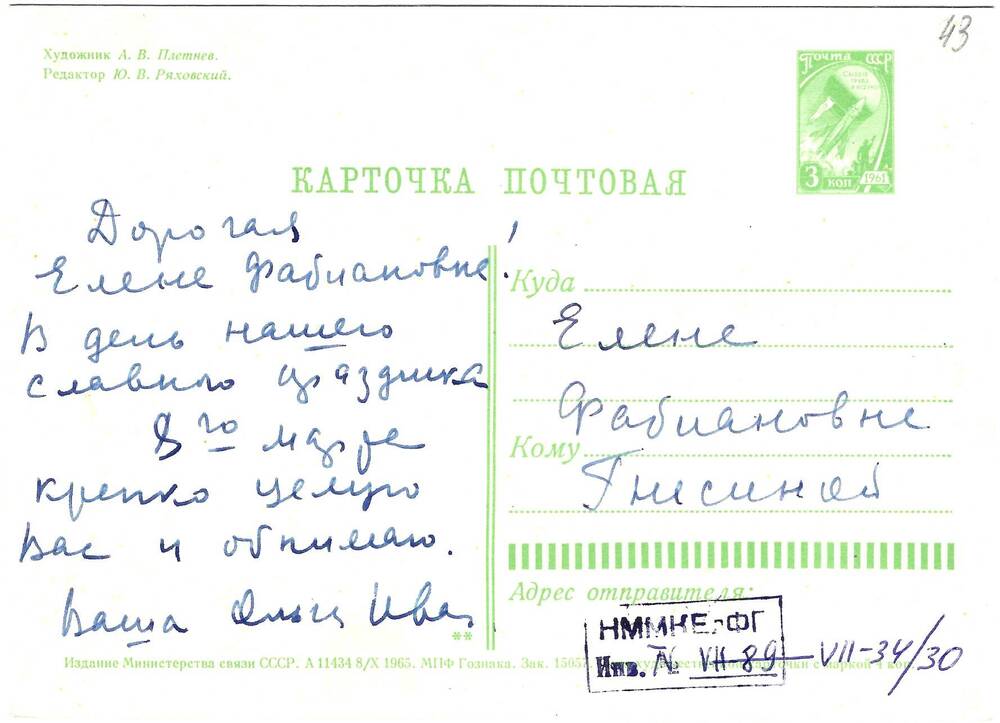 43
Художник А. В. Плетнев.
Редактор Ю. В. Ряховский.
Почта СССР
3 коп 1961
КАРТОЧКА ПОЧТОВАЯ
Дорогая
Елене Фабиановне!
В день нашего
славного праздника
8го марта
крепко целую
Вас и обнимаю.
Ваша Ольга
**
Куда
Елене
Фабиановне
Кому
Гнесиной
Адрес отправителя:
НММКЕ.ФГ
Инв. № VII-89 VII-34/30
Издание Министерства связи СССР. А 11434 8/X 1965. МПФ Гознака. Зак.